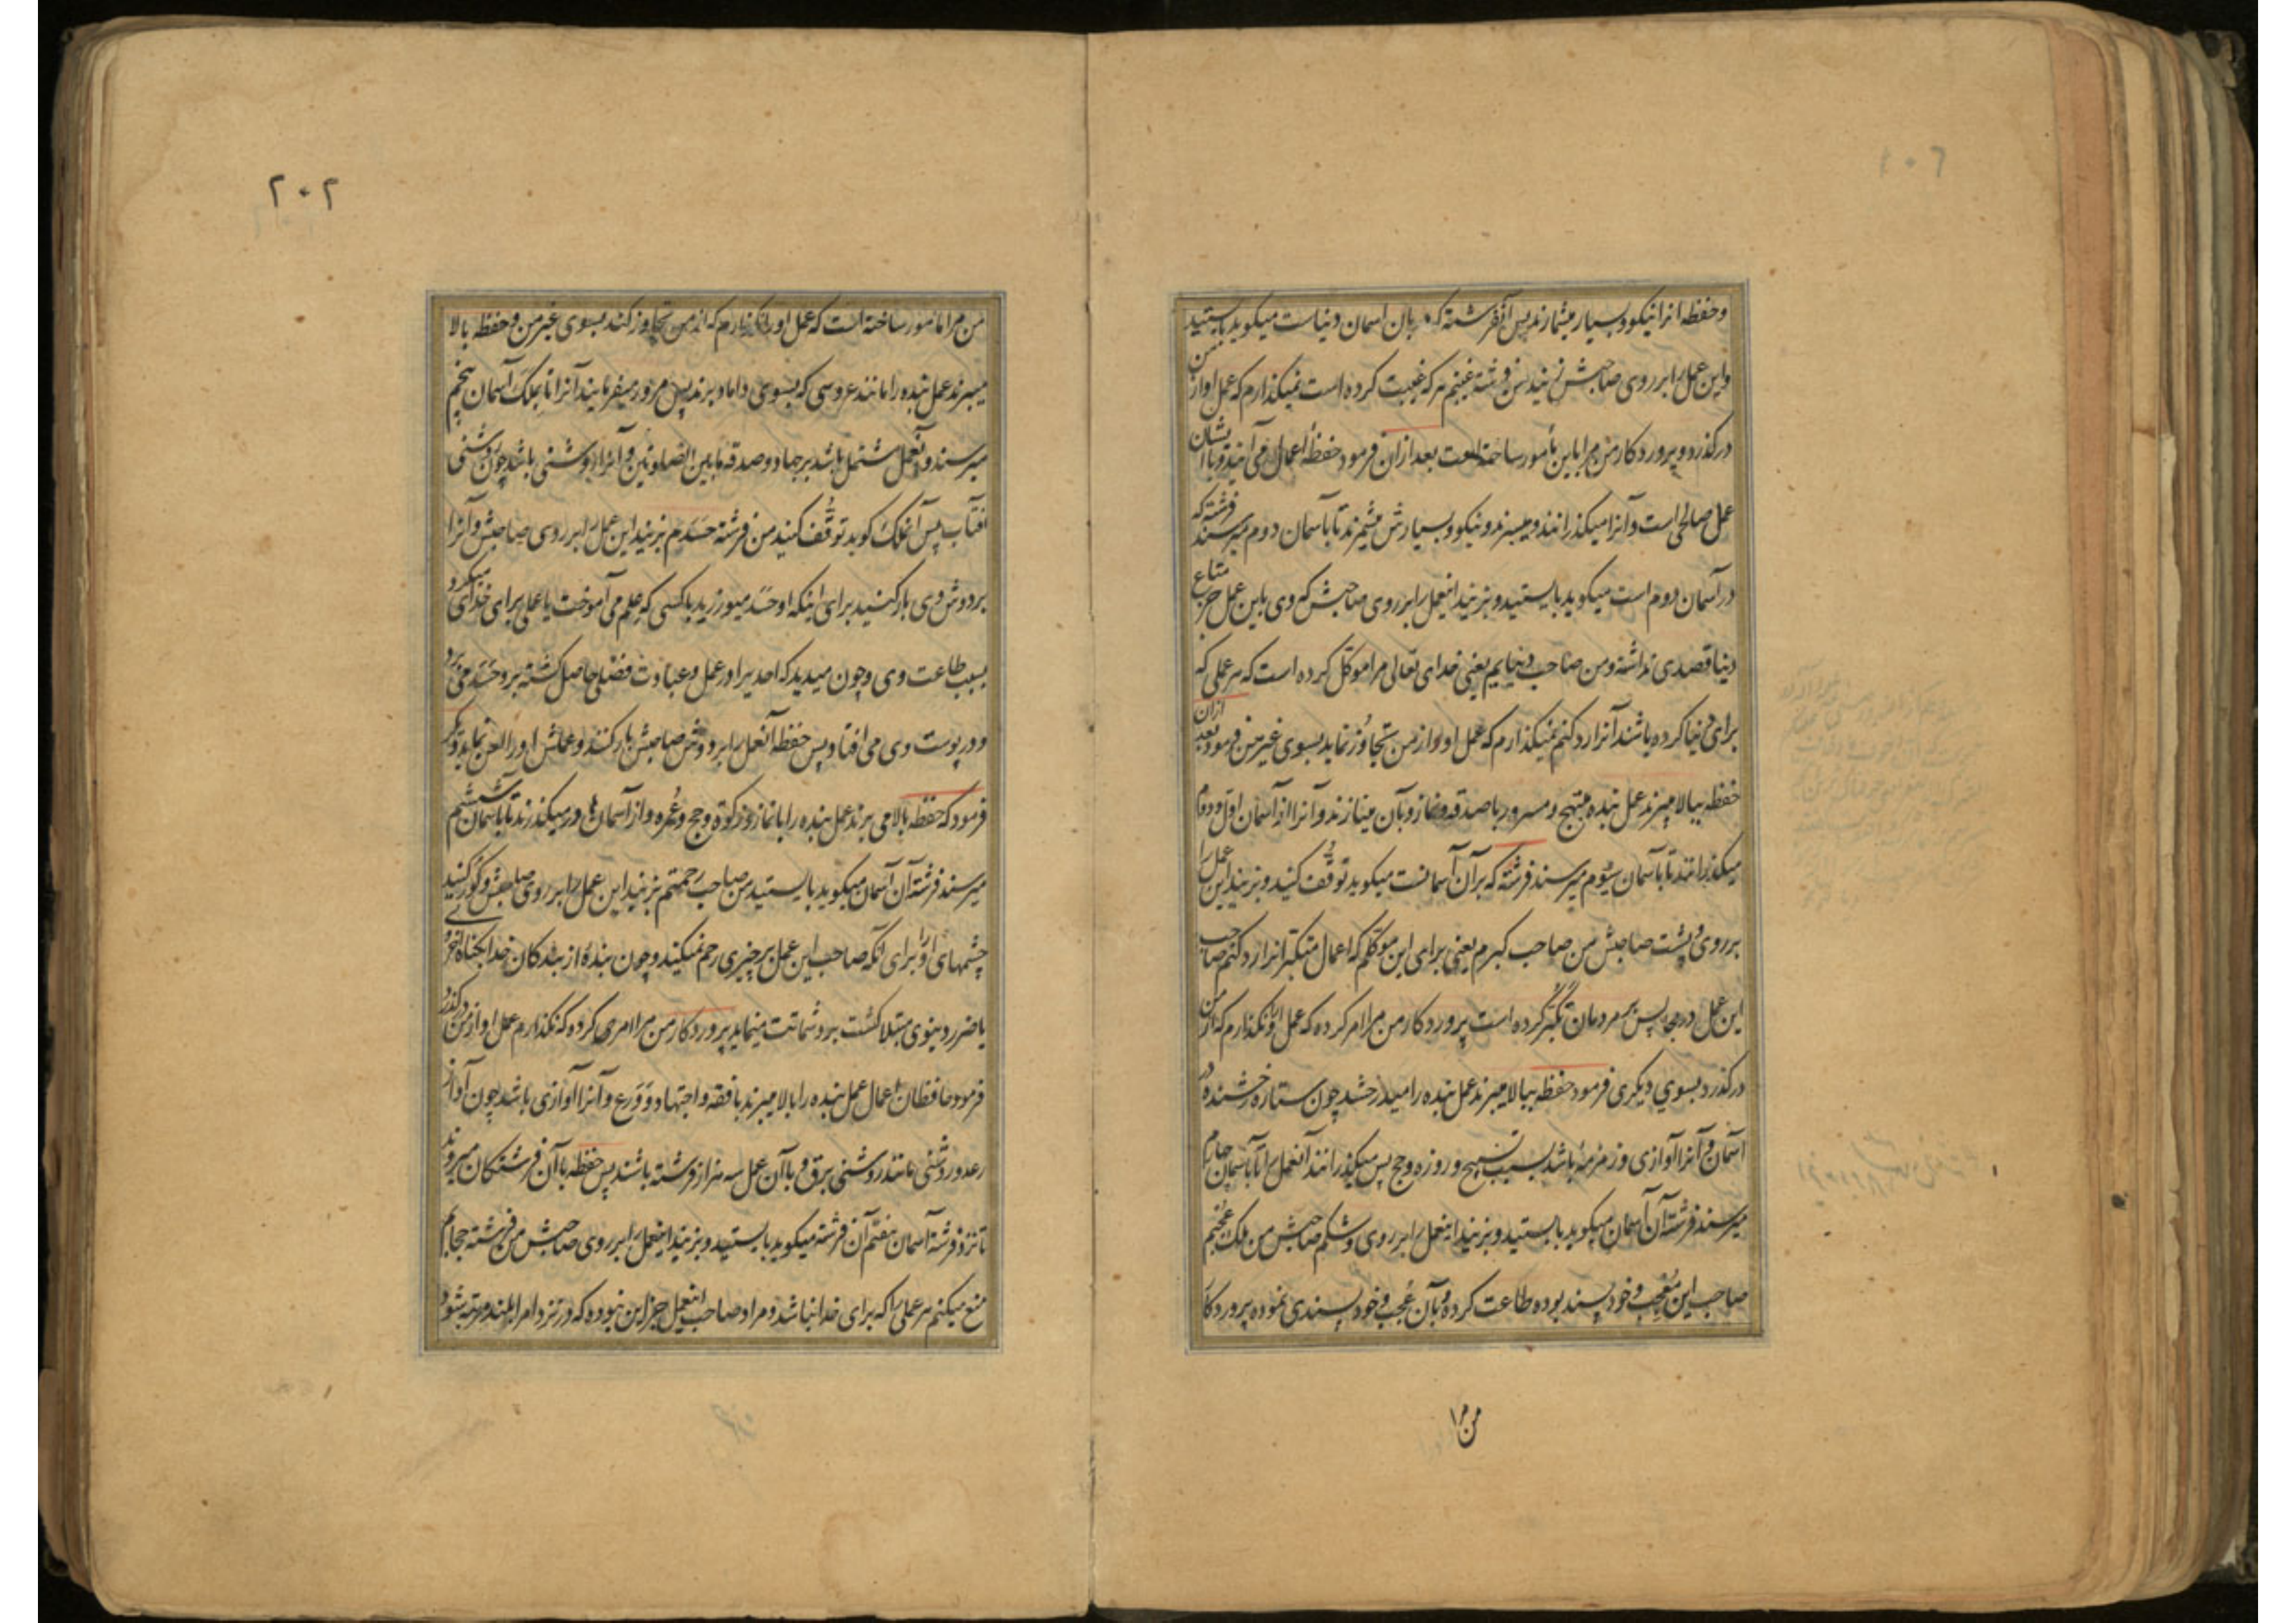 وحفظه انرا نیکو و بسیار میشمارند پس آنفرشته که دربان اسمان دنیاست میکوید بایستید
واین عمل را بر روی صاحبش زنید من فرشته غیبتم هر که غیبت کرده است نمیکذارم که عمل او از من
درکذرد و پروردکار من مرا باین مأمور ساخته است بعد ازان فرمود حفظهٔ اعمال می آیند و با ایشان
عمل صالحی است وآنرا میکذرانند و میبرند و نیکو و بسیارش میشمرند تا باسمان دوم میرسند فرشته که
در آسمان دوم است میکوید بایستید و بزنید اینعمل را بر روی صاحبش که وی باین عمل جز متاع
دنیا قصدی نداشته ومن صاحب دنیایم یعنی خدای تعالی مرا موکّل کرده است که هر عملی که
برای دنیا کرده باشند آنرا رد کنم نمیکذارم که عمل او از من تجاوُز نماید بسوی غیر من فرمود بعد ازان
حفظه ببالا میبرند عمل بنده مبتهج و مسرور با صدقه و نماز و بآن مینازند و آنرا از آسمان اوّل و دوم
میکذرانند تا باسمان سیُوم میرسند فرشتهٔ که بر آن آسمانست میکوید توقّف کنید و بزنید این عمل را
بر روی و پشت صاحبش من صاحب کبرم یعنی برای این موکّلم که اعمال متکبّرانرا رد کنم صاحب
این عمل در مجالس بر مردمان تکبّر کرده است پروردکار من مرا امر کرده که عمل او را نکذارم که از من
درکذرد بسوی دیکری فرمود حفظه ببالا میبرند عمل بنده را میدرخشد چون ستاره درخشنده در
آسمان و آنرا آوازی و زمزمهٔ باشد بسبب تسبیح و روزه و حج پس میکذرانند آنعمل را تا باسمان چهارم
میرسند فرشتهٔ آن آسمان میکوید بایستید و بزنید اینعمل را بر روی و شکم صاحبش من ملک عُجبم
صاحب این مُعجِب و خود پسند بوده طاعت کرده و بآن عُجب و خود پسندی نموده پروردکار
من مرا
۲۰۲
من مرا مامور ساخته است که عمل او را نکذارم که از من تجاوز کند بسوی غیر من و حفظه بالا
میبرند عمل بنده را مانند عروسی که بسوی داماد برند پس مرور میفرمایند آنرا تا بملک آسمان پنجم
میرسند و آنعمل مشتمل باشد بر جهاد و صدقه ما بین الصلوتین و آنرا روشنی باشد چون روشنی
افتاب پس آنملک کوید توقُّف کنید من فرشته حسدم بزنید این عمل را بر روی صاحبش و آنرا
بر دوش وی بار کنید برای اینکه او حَسَد میورزید با کسی که علم می آموخت یا عملی برای خدای میکرد
بسبب طاعت وی و چون میدید که احدیرا در عمل و عبادت فضلی حاصل کشته برو حَسَد می برد
و در پوست وی می افتاد پس حفظه آنعمل را بر دوش صاحبش بار کنند و عملش او را لعن نماید و دیکر
فرمود که حفظه بالا می برند عمل بنده را با نماز و زکوة و حج و عُمره و از آسمان ها در میکذرند تا باسمان ششم
میرسند فرشتهٔ آن آسمان میکوید بایستید من صاحب رحمتم بزنید این عمل را بر روی صاحبش و کور کنید
چشمهای او را برای آنکه صاحب این عمل بر چیزی رحم نمیکند و چون بندهٔ از بندکان خدا بکناه اخروی
یا ضرر دینوی مبتلا کشت برو شماتت مینماید پروردکار من مرا امری کرده که نکذارم عمل او از من درکذرد
فرمود حافظان اعمال عمل بنده را بالا میبرند با فقه و اجتهاد و وَرَع و آنرا آوازی باشد چون آواز
رعد و روشنی مانند روشنی برق و با آن عمل سه هزار فرشته باشند پس حفظه با آن فرشتکان میروند
تا نزد فرشتهٔ آسمان هفتم آن فرشته میکوید بایستید و بزنید اینعمل را بر روی صاحبش من فرشته حجابم
منع میکنم هر عملی را که برای خدا نباشد و مراد صاحب اینعمل جز این نبوده که در نزد امرا بلند مرتبه شود